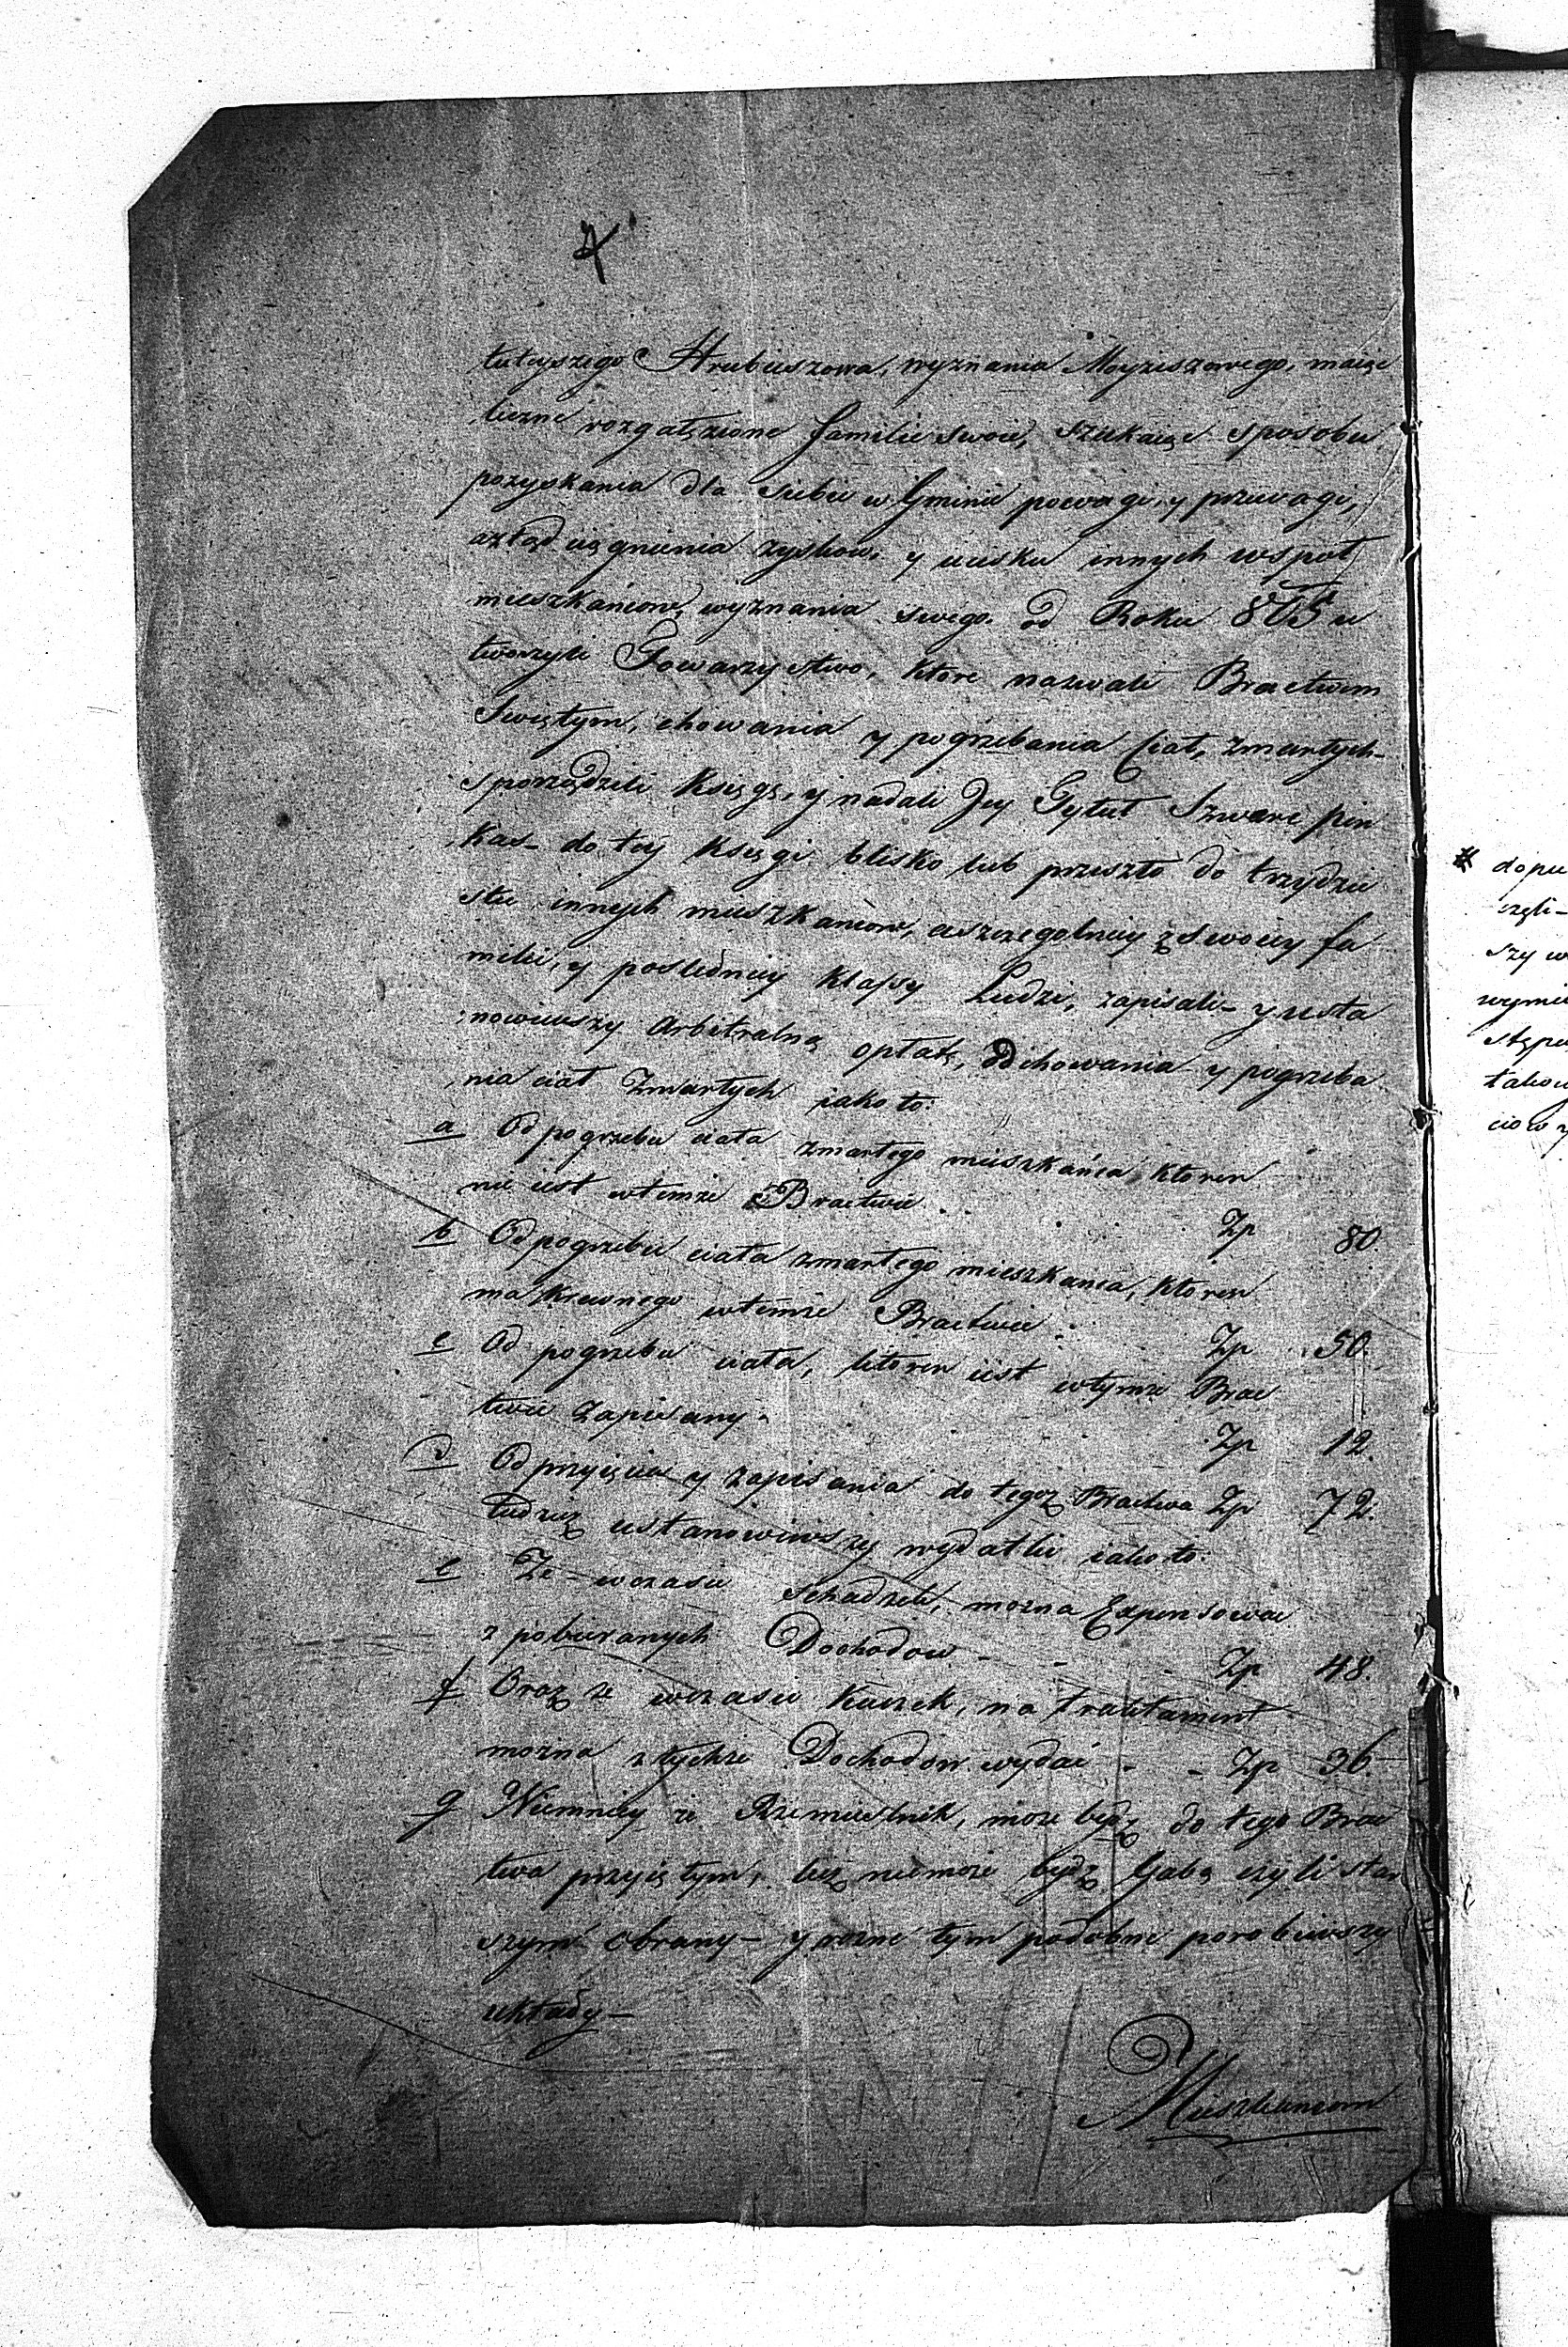 tuteyszego Hrubieszowa, wyznania Moyżeszowego, maiąc
liczne rozgałęzione familie swoie, szukaiąc sposobu
pozyskania dla siebie w Gminie powagi, y przewagi,
a ztąd ciągnienia zyskow, y ucisku innych wspoł
mieszkańcow wyznania swego. od Roku 805 u
tworzyli Towarzystwo, ktore nazwali Bractwem
Swiętym, chowania y pogrzebania Ciał, zmartych
sporządzili Księgę, y nadali Jey Tytuł Szwarc pin
kas_ do tey Księgi blisko lub przeszło do trzydzie
stu innych mieszkancow, a szczegolniey z swoiey fa
milii, y pośledniey klassy Ludzi, zapisali_ y usta
nowiwszy Arbitralną opłatę, od chowania y pogrzeba
nia ciał Zmartych iako to:
a Od pogrzebu ciała zmartego mieszkańca, ktoren
nie iest w temże Bractwie . . Zp 80.
b Od pogrzebu ciała zmartego mieszkanca, ktoren
ma krewnego w temże Bractwie . Zp 50.
c Od pogrzebu ciała, ktoren iest w tymże Brac
twie Zapisany. Zp 12.
d Od przyięcia y zapisania do tegoż Bractwa Zp 72.
tudzież ustanowiwszy wydatki iako to:
e Że w czasie schadzek, można Expensować
z pobieranych Dochodow _ Zp 48.
f Oraz że w czasie Kuczek, na traktament
można z tychże Dochodow wydać - - Zp 36
g Niemniey że Rzemieslnik, może bydź do tego Brac
twa przyiętym, lecz nie może bydź Gabą czyli star
szym obrany_ y rożne tym podobne porobiwszy
układy_
Mieszkancom
dopu
częli_
szy w
wymie
stępu
takow
ciow y